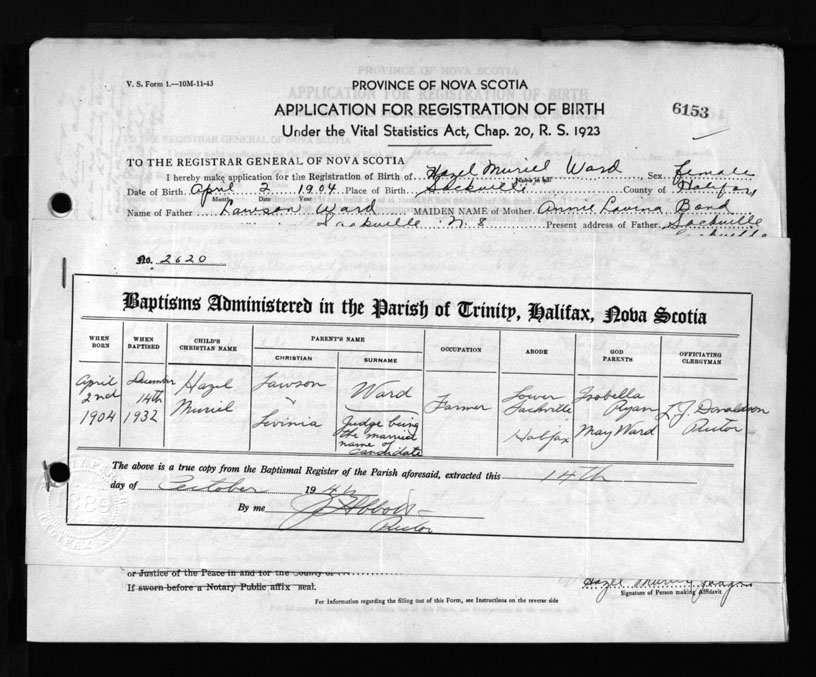 V. S. Form 1.—10M-11-43
PROVINCE OF NOVA SCOTIA
APPLICATION FOR REGISTRATION OF BIRTH
Under the Vital Statistics Act, Chap. 20, R. S. 1923
6153
TO THE REGISTRAR GENERAL OF NOVA SCOTIA
I hereby make application for the Registration of Birth of Hazel Muriel Ward, Sex female
Date of Birth April 2 1904 Place of Birth Sackville County of Halifax
Month Date Year
Name of Father Lawson Ward MAIDEN NAME of Mother Annie Lavina Bond
Sackville N. S Present address of Father Sackville
No. 2620
Baptisms Administered in the Parish of Trinity, Halifax, Nova Scotia
WHEN BORN WHEN BAPTISED CHILD'S CHRISTIAN NAME PARENT'S NAME OCCUPATION ABODE GOD PARENTS OFFICIATING CLERGYMAN
CHRISTIAN SURNAME
April December Hazel Lawson Ward Farmer Lower Isabella L J Donaldson
2nd 14th Muriel Sackville Ryan Rector
1904 1932 Levinia Judge being Halifax May Ward
the married
name of
candidate
The above is a true copy from the Baptismal Register of the Parish aforesaid, extracted this 14th
day of October 1944
By me J Abbott
Rector
or Justice of the Peace in and for the County of
If sworn before a Notary Public affix seal.
Hazel Muriel
Signature of Person making Affidavit
For Information regarding the filling out of this Form, see Instructions on the reverse side